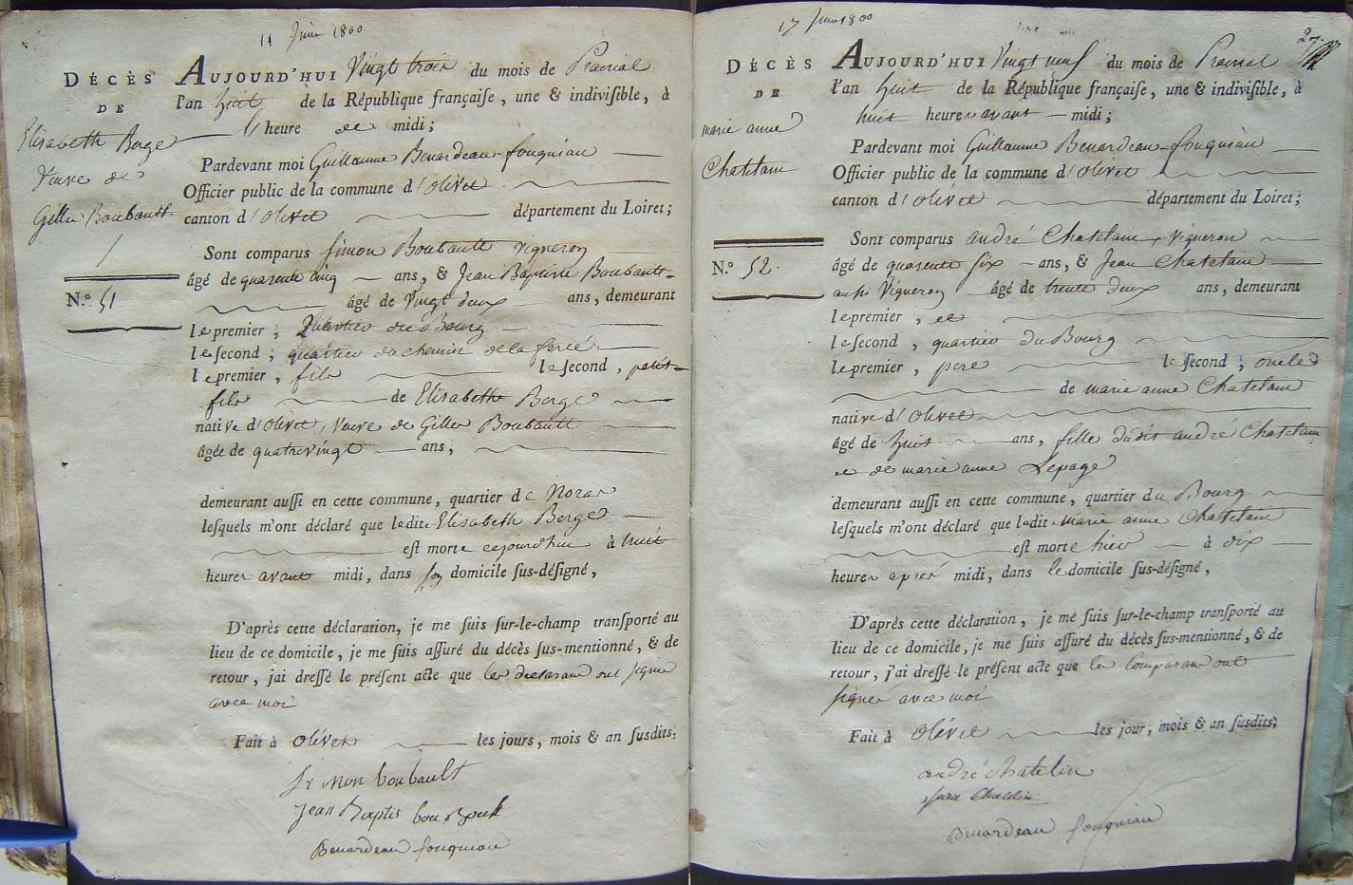 11 Juin 1800
DÉCÈS
DE
Elisabeth Berge
Veuve de
Gilles Boubault
N.º 51
AUJOURD'HUI Vingt trois du mois de Prairial
l'an huit de la République françaiſe, une & indiviſible, à
heure de midi;
Pardevant moi Guillaume Benardeau-fouquiau
Officier public de la commune d'Olivet
canton d'Olivet département du Loiret;
Sont comparus Simon Boubault Vigneron
âgé de quarente cinq ans, & Jean Baptiste Boubault
âgé de Vingt deux ans, demeurant
le premier, Quartier du bourg
le ſecond, quartier du chemin de la ferté
le premier, fils le ſecond, petit-
fils de Elisabeth Berge
native d'Olivet, Veuve de Gilles Boubault
âgée de quatrevingt ans,
demeurant auſſi en cette commune, quartier de Noras
leſquels m'ont déclaré que ladite Elisabeth Berge
eſt morte cejourd'hui à huit
heures avant midi, dans ſon domicile ſus-déſigné,
D'après cette déclaration, je me ſuis ſur-le-champ tranſporté au
lieu de ce domicile, je me ſuis aſſuré du décès ſus-mentionné, & de
retour, j'ai dreſſé le préſent acte que les declarans ont signé
avec moi
Fait à Olivet les jours, mois & an ſuſdits;
Simon boubault
Jean Baptis
Benardeau fouquiau
17 Juin 1800
DÉCÈS
DE
marie anne
Chatelain
N.º 52.
AUJOURD'HUI Vingt neuf du mois de Prairial
l'an huit de la République françaiſe, une & indiviſible, à
huit heures avant midi;
Pardevant moi Guillaume Benardeau-fouquiau
Officier public de la commune d'Olivet
canton d'Olivet département du Loiret;
Sont comparus andré Chatelain, Vigneron
âgé de quarente six ans, & Jean Chatelain
aussi Vigneron âgé de trente deux ans, demeurant
le premier, et
le ſecond, quartier du Bourg
le premier, pere le ſecond, oncle
de marie anne Chatelain
native d'Olivet
âgé de huit ans, fille dudit andré Chatelain
et de marie anne Lepage
demeurant auſſi en cette commune, quartier du Bourg
leſquels m'ont déclaré que ladit marie anne Chatelain
eſt morte hier à dix
heures après midi, dans le domicile ſus-déſigné,
D'après cette déclaration, je me ſuis ſur-le-champ tranſporté au
lieu de ce domicile, je me ſuis aſſuré du décès ſus-mentionné, & de
retour, j'ai dreſſé le préſent acte que les Comparans ont
signé avec moi
Fait à Olivet les jour, mois & an ſuſdits;
andré chatelin
Benardeau fouquiau